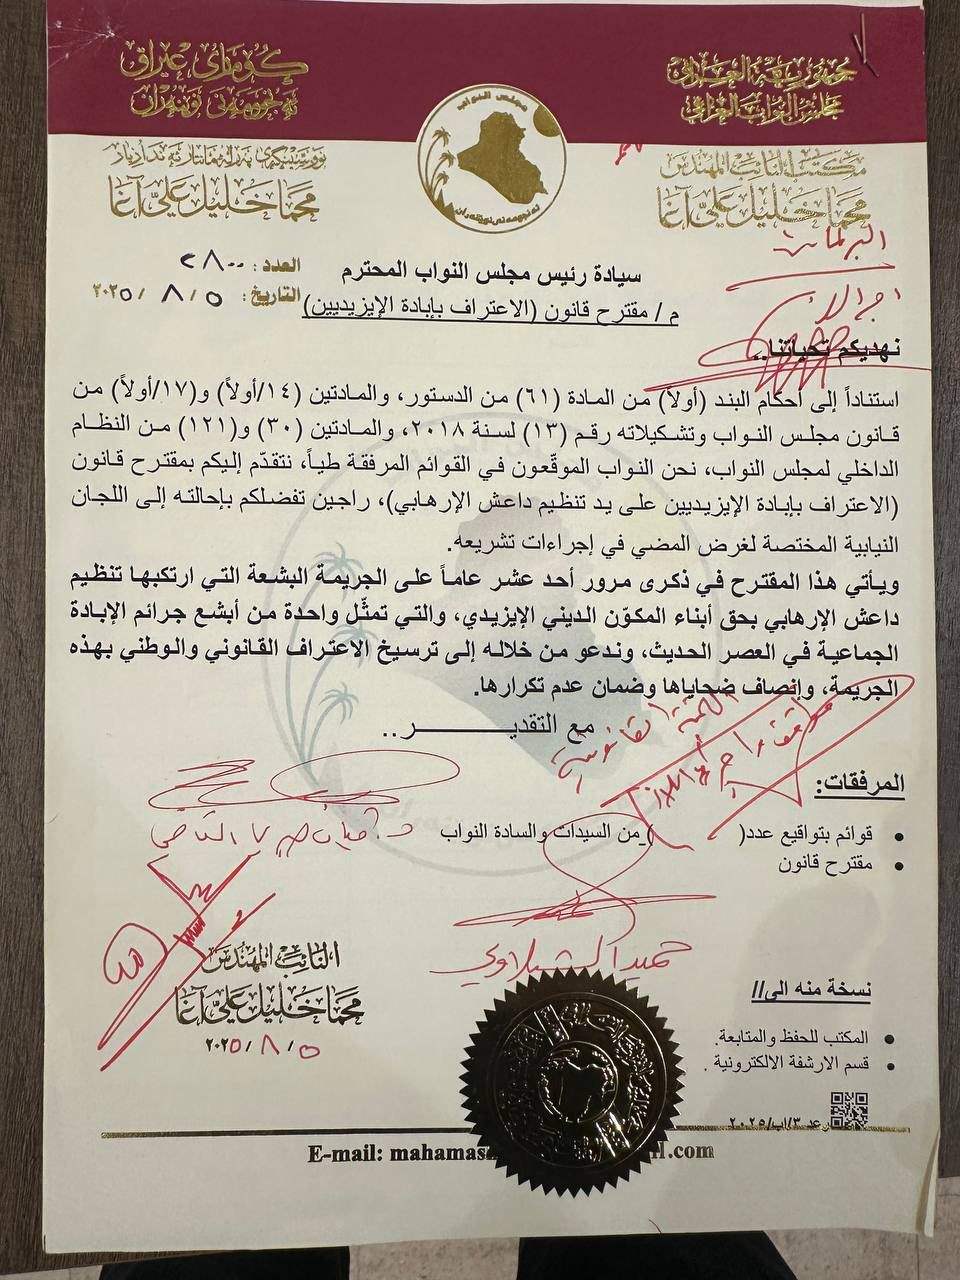 جمهورية العراق
مجلس النواب العراقي
كۆماری عێراق
ئه نجومه نی نوێنه ران
مجلس النواب
ئه نجومه نی نوێنه ران
مكتب النائب المهندس
محما خليل علي آغا
محما خليل علي آغا
العدد : ٢٨٠٠
التاريخ: ٢٠٢٥/٨/٥
سيادة رئيس مجلس النواب المحترم
م / مقترح قانون (الاعتراف بإبادة الإيزيديين)
نهديكم تحياتنا..
استناداً إلى أحكام البند (أولاً) من المادة (٦١) من الدستور، والمادتين (١٤/أولاً) و(١٧/أولاً) من
قانون مجلس النواب وتشكيلاته رقم (١٣) لسنة ٢٠١٨، والمادتين (٣٠) و(١٢١) من النظام
الداخلي لمجلس النواب، نحن النواب الموقّعون في القوائم المرفقة طياً، نتقدّم إليكم بمقترح قانون
(الاعتراف بإبادة الإيزيديين على يد تنظيم داعش الإرهابي)، راجين تفضلكم بإحالته إلى اللجان
النيابية المختصة لغرض المضي في إجراءات تشريعه.
ويأتي هذا المقترح في ذكرى مرور أحد عشر عاماً على الجريمة البشعة التي ارتكبها تنظيم
داعش الإرهابي بحق أبناء المكوّن الديني الإيزيدي، والتي تمثّل واحدة من أبشع جرائم الإبادة
الجماعية في العصر الحديث، وندعو من خلاله إلى ترسيخ الاعتراف القانوني والوطني بهذه
الجريمة، وإنصاف ضحاياها وضمان عدم تكرارها.
مع التقديـــــــــــر ..
اللجنة القانونية
المرفقات:
• قوائم بتواقيع عدد( ) من السيدات والسادة النواب
• مقترح قانون
النائب المهندس
محما خليل علي آغا
٢٠٢٥/٨/٥
نسخة منه الى//
• المكتب للحفظ والمتابعة.
• قسم الارشفة الالكترونية .
E-mail: mahamas
.com